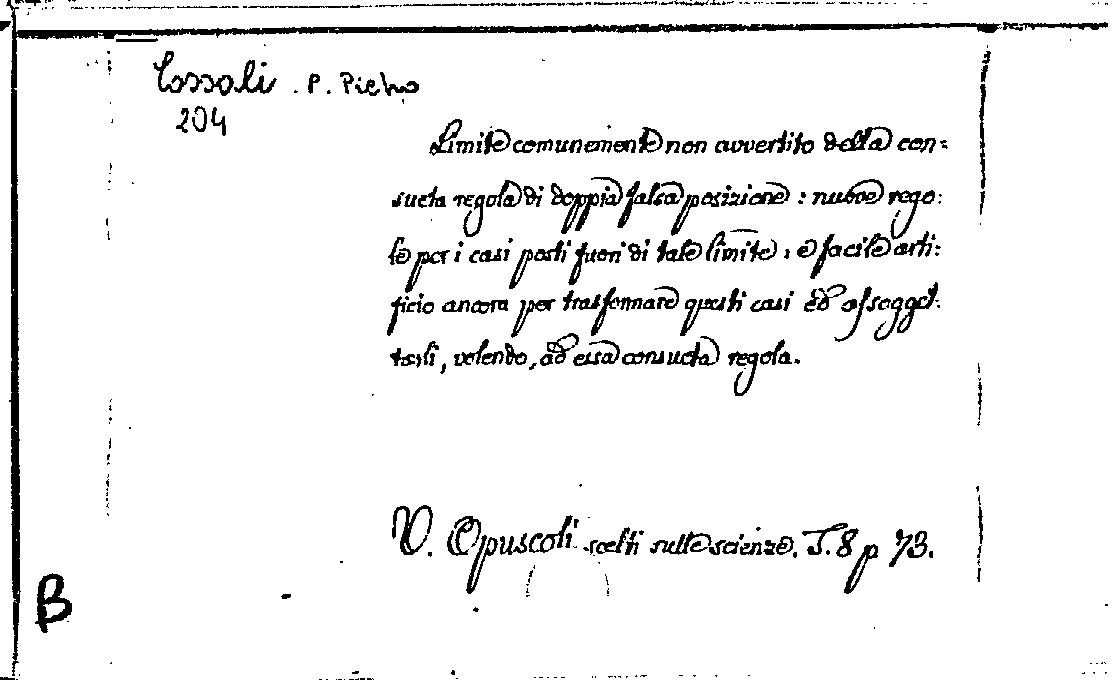 Cossali . P. Pietro
204
Limite comunemente non avvertito della con=
sueta regola di doppia falsa posizione : nuove rego:
le per i casi posti fuori di tale limite, e facile arti:
ficio ancora per trasformare questi casi ed assogget:
tarli, volendo, ad essa consueta regola.
V. Opuscoli scelti sulle scienze. T. 8 p 73.
B